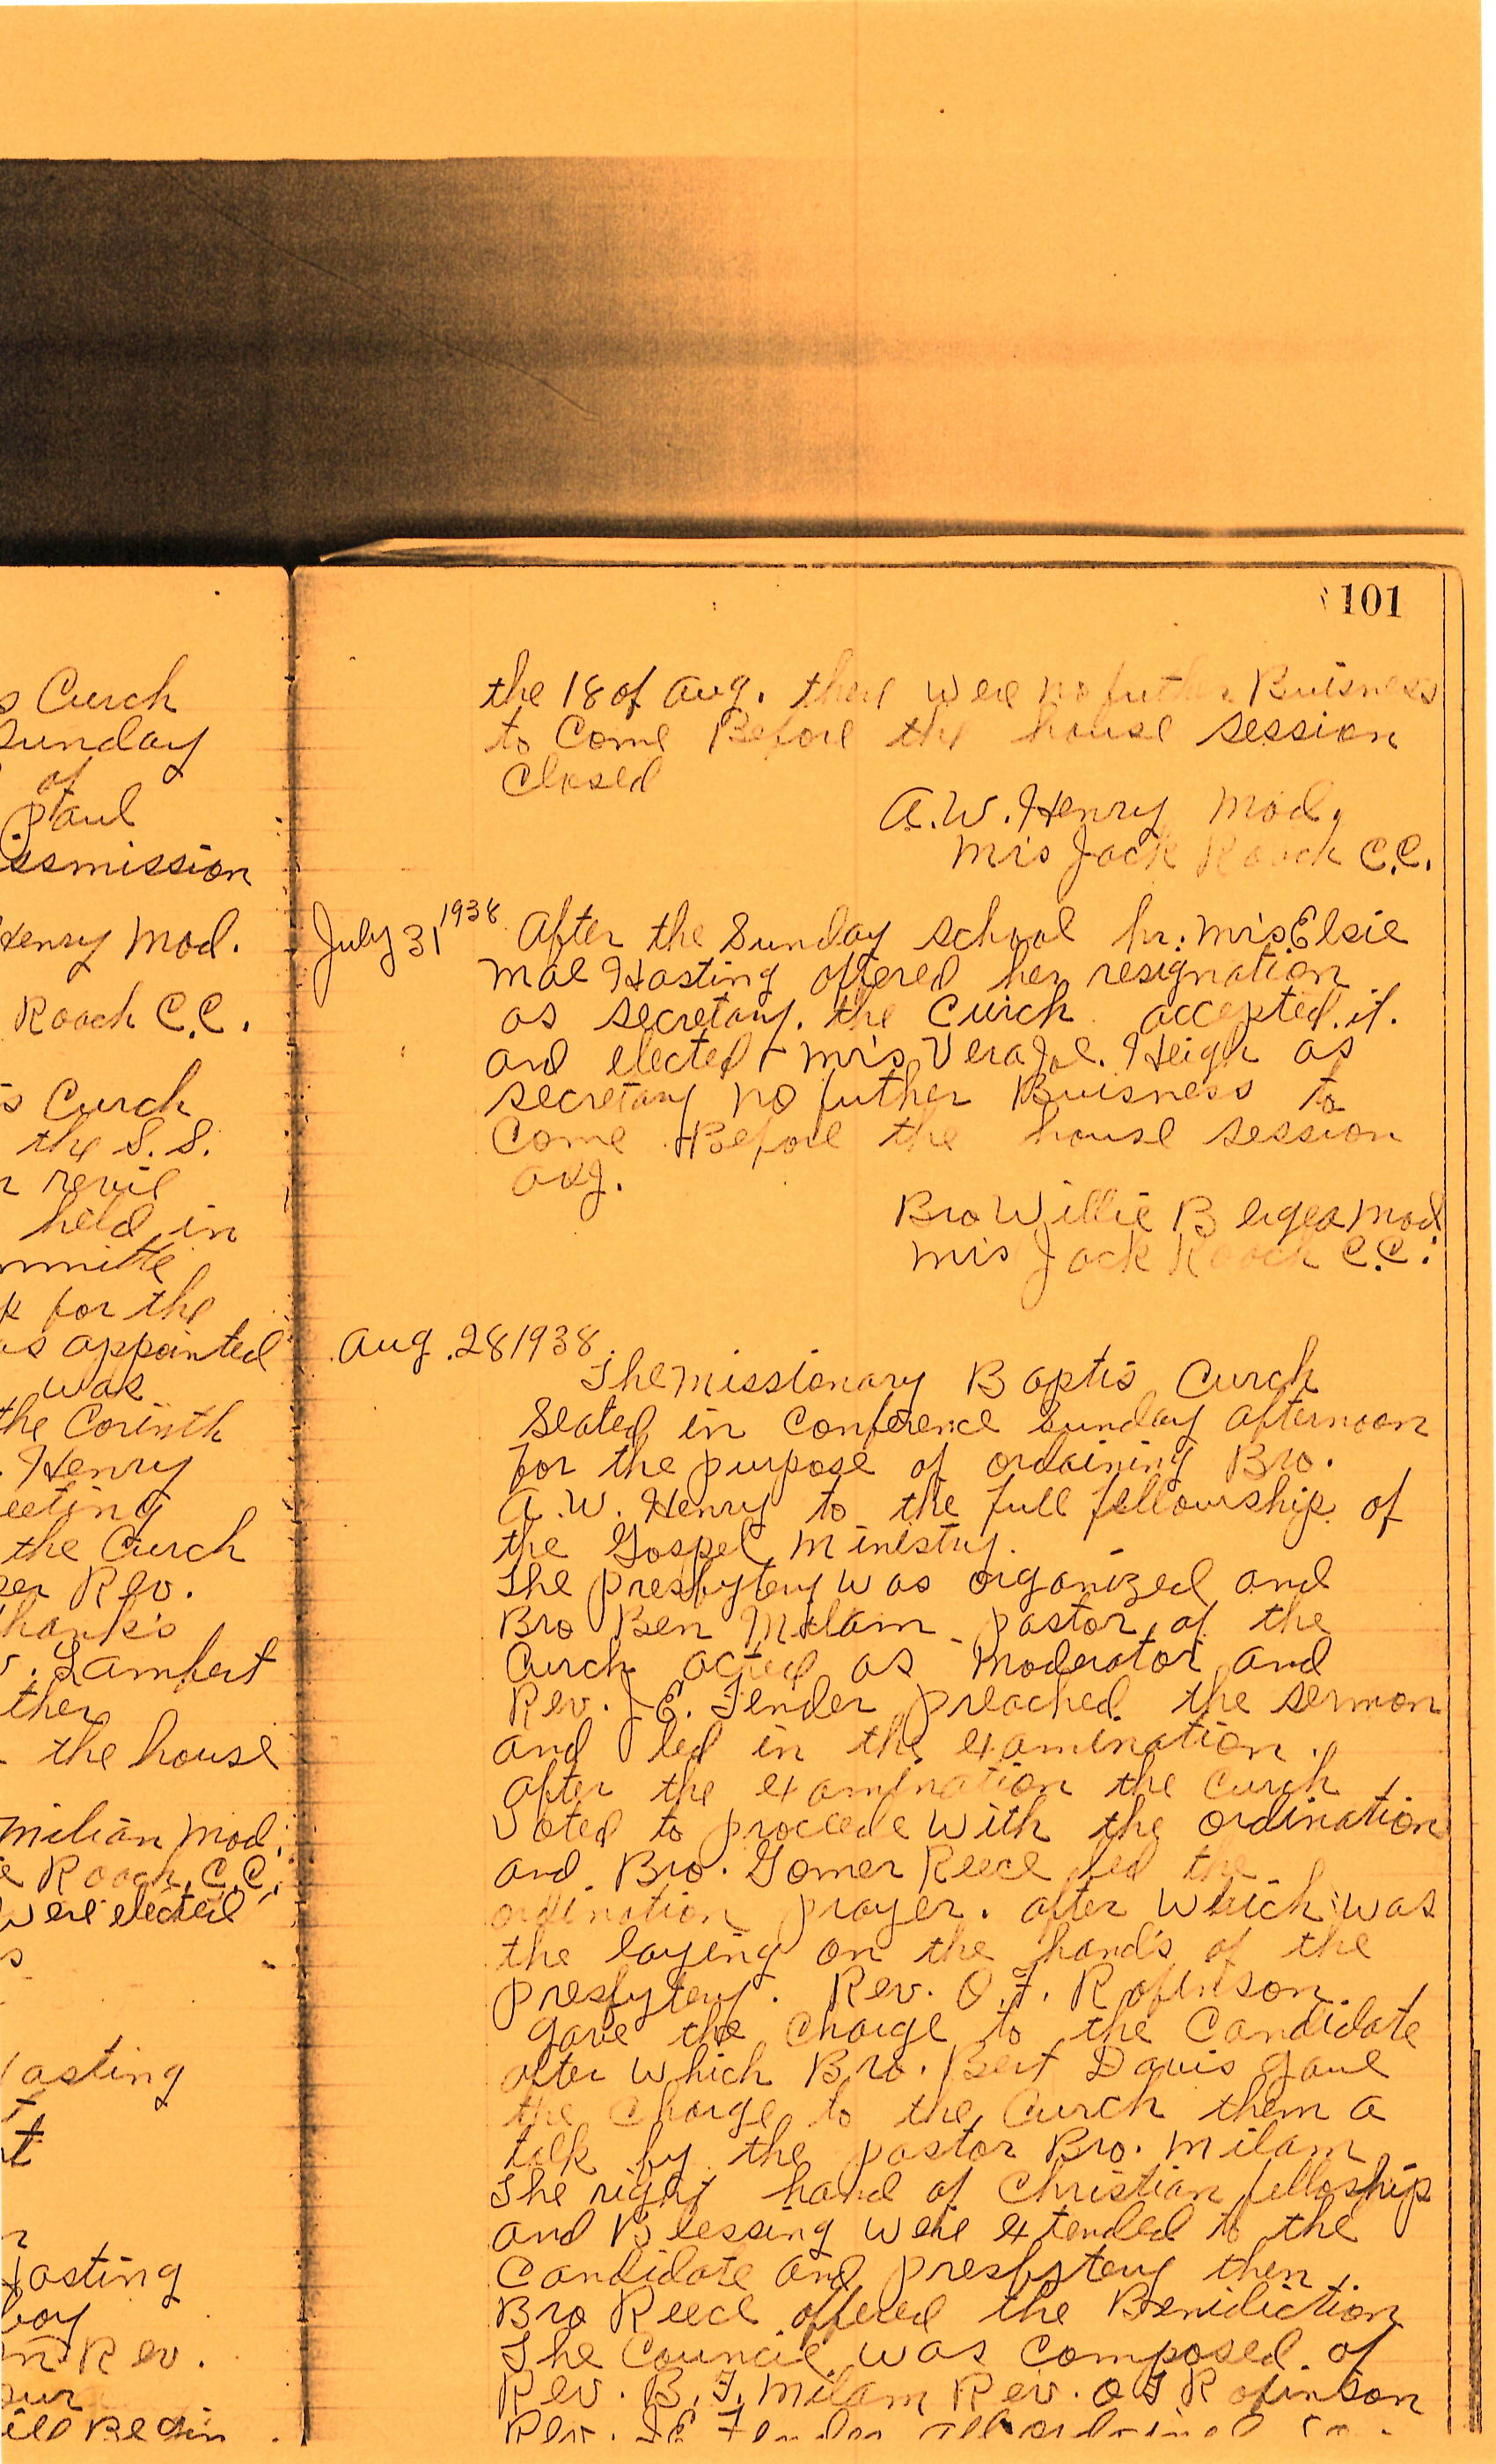 s Curch
Sunday
of
paul
issmission
Henry Mod.
Roach C.C.
s Curch
the S.S.
revil
held in
mmitte
k for the
as appointed
was
the Corinth
. Henry
eeting
the Curch
Rev.
thank's
. Lambert
ther
the house
milian Mod.
Roach C.C.
were elected
s
Hasting
t
Hasting
boy
Rev.
our
Begin
101
the 18 of Aug. there were no futher Buisness
to Come Before the house session
Closed
A.W. Henry Mod.
Mrs Jack Roach C.C.
July 31 1938 After the Sunday school hr. Mrs Elsie
Mae Hasting offered her resignation
as secretary. the Curch accepted it.
and elected Mrs Vera Joe. Heigh as
secretary no futher Buisness to
Come Before the house session
adj.
Bro Willie Mod
Mrs Jack Roach C.C.
Aug. 28 1938.
The Missionary Baptis Curch
Seated in Conference Sunday afternoon
for the purpose of ordaining Bro.
A.W. Henry to the full fellowship of
the Gospel Ministry.
The presbytery was organized and
Bro Ben Milam pastor of the
Curch acted as Moderator and
Rev. J.E. Fender preached the sermon
and led in the examination.
after the examination the Curch
Voted to procede with the ordination
and Bro. Gomer Reece led the
ordination prayer. after which was
the laying on the hand's of the
presbytery. Rev. O.F. Robinson.
gave the Charge to the Candidate
after which Bro. Bert Davis gave
the Charge to the Curch them a
talk by the pastor Bro. Milam
The right hand of Christian felloship
and Blessing were extended to the
Candidate and presbytery then.
Bro Reece offered the Benidiction
The Council was Composed of
Rev. B.F. Milam Rev. O F Robinson
Rev. J E Fender all ordained